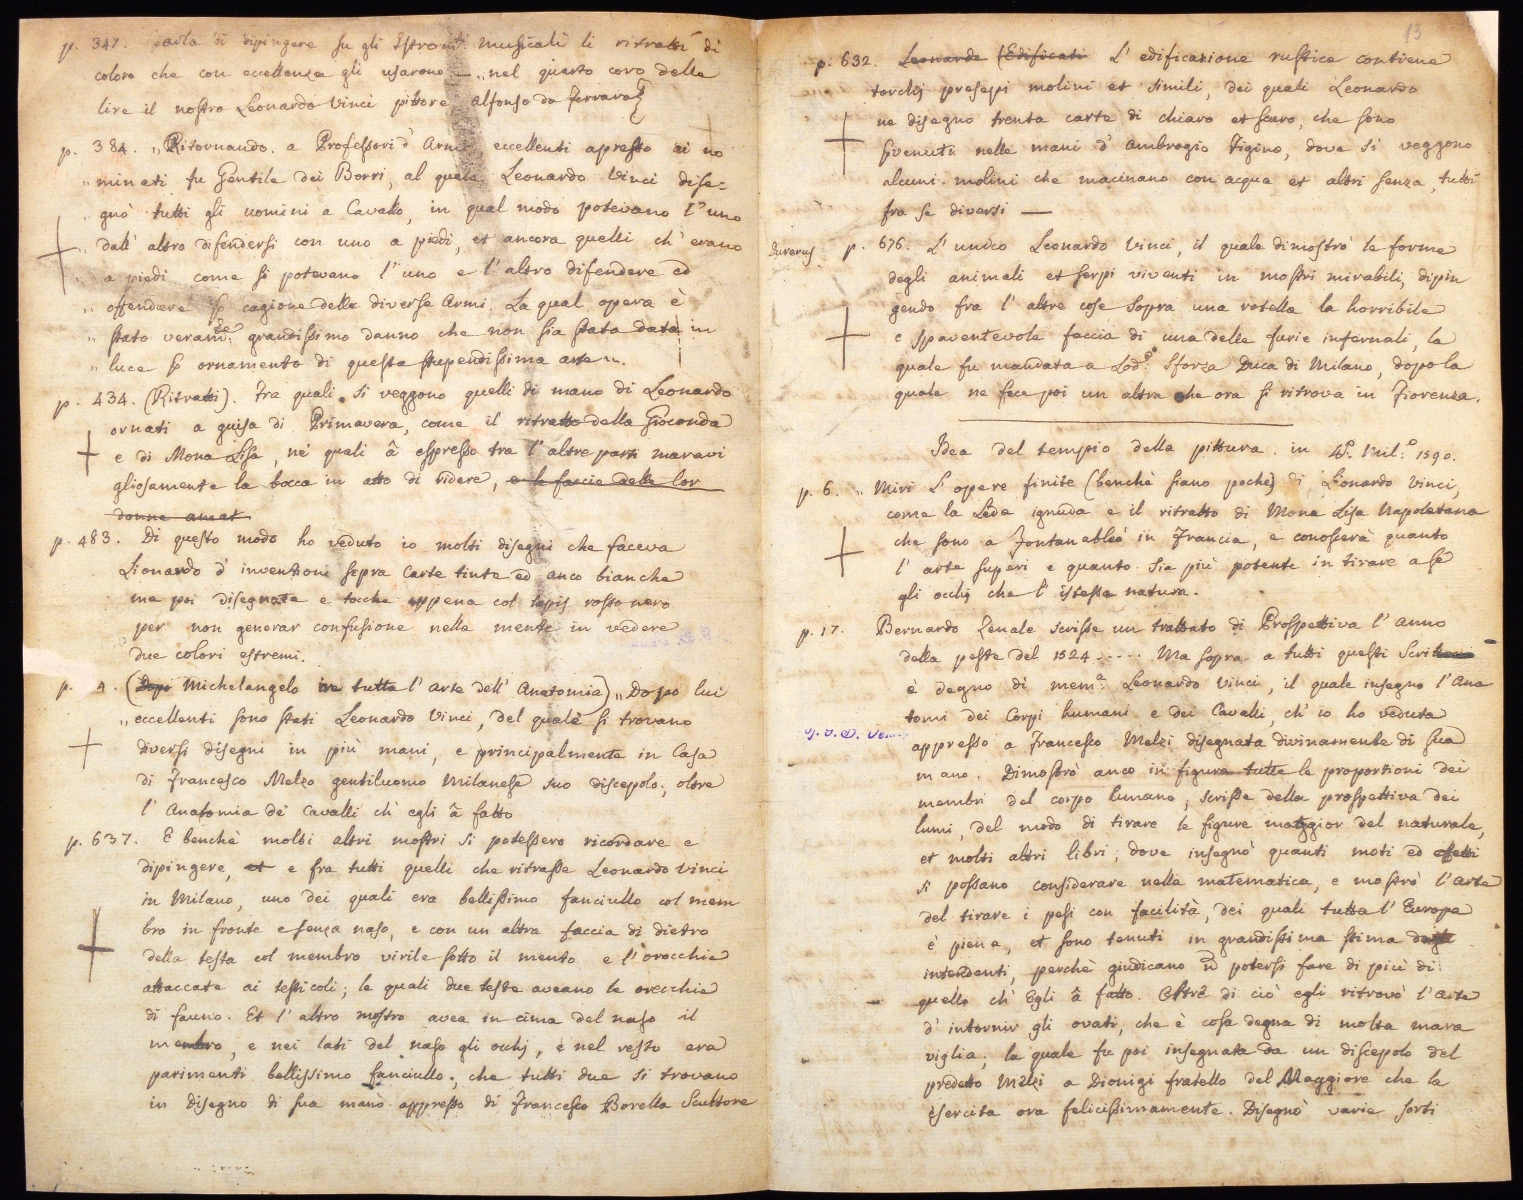 p. 347. parla di dipingere su gli Istromti musicali li ritratti di
coloro che con eccellenza gli usarono — „ nel quarto coro delle
lire il nostro Leonardo Vinci pittore, Alfonso da Ferrara
p. 384. „ Ritornando a Professori d' Armi eccellenti apresso ai no
„ minati fu Gentile dei Borri, al quale Leonardo Vinci dise=
gnò tutti gli uomini a Cavallo, in qual modo potevano l' uno
„ dall' altro difendersi con uno a piedi, et ancora quelli ch' erano
„ a piedi come si potevano l' uno e l' altro difendere ed
„ offendere cagione delle diverse Armi. La qual opera è
„ stato veramte grandissimo danno che non sia stata data in
„ luce ornamento di questa stupendissima arte „.
p. 434. (Ritratti). Fra quali si veggono quelli di mano di Leonardo
ornati a guisa di Primavera, come il ritratto della Gioconda
e di Mona Lisa, ne' quali â espresso tra l' altre parti maravi
gliosamente la bocca in atto di ridere, e le fascie delle lor
donne
p. 483. Di questo modo ho veduto io molti disegni che faceva
Lionardo d' invenzioni sopra Carte tinte ed anco bianche
ma poi disegnate e tocche appena col lapis rosso nero
per non generar confusione nella mente in vedere
due colori estremi.
p. 4. (Dopo Michelangelo tutta l' arte dell' Anatomia) „ Dopo lui
„ eccellenti sono stati Leonardo Vinci, del quale si trovano
diversi disegni in più mani, e principalmente in Casa
di Francesco Melzo gentiluomo Milanese suo discepolo, oltre
l' Anatomia de' Cavalli ch' egli â fatto
p. 637. E benchè molti altri mostri si potessero ricordare e
dipingere, et e fra tutti quelli che ritrasse Leonardo Vinci
in Milano, uno dei quali era bellissimo fanciullo col mem
bro in fronte e senza naso, e con un altra faccia di dietro
della testa col membro virile sotto il mento e l' orecchie
attaccate ai testicoli; le quali due teste aveano le orecchie
di fauno. Et l' altro mostro avea in cima del naso il
membro, e nei lati del naso gli occhj, e nel resto era
parimenti bellissimo fanciullo, che tutti due si trovano
in disegno di sua mano appresso di Francesco Borella Scultore
13
p. 632. Leonardo (Edificati L' edificazione rustica contiene
torchj presepi molini et simili, dei quali Leonardo
ne disegnò trenta carte di chiaro et scuro, che sono
divenute nelle mani d' Ambrogio Figino, dove si veggono
alcuni molini che macinano con acqua et altri senza, tutti
fra se diversi —
Durerus p. 676. L' unico Leonardo Vinci, il quale dimostrò le forme
degli animali et serpi viventi in mostri mirabili, dipin
gendo fra l' altre cose sopra una rotella la horribile
e spaventevole faccia di una delle furie infernali, la
quale fu mandata a Lodo Sforza Duca di Milano, dopo la
quale ne fece poi un altra che ora si ritrova in Fiorenza.
Idea del tempio della pittura. in 4o. Mil.o 1590.
p. 6. „ Miri L' opere finite (benchè siano poche) di Lionardo Vinci,
come la Leda ignuda e il ritratto di Mona Lisa Napoletana
che sono a Fontanableò in Francia, e conoscerà quanto
l' arte superi e quanto sia più potente in tirare a se
gli occhj che l' istessa natura.
p. 17. Bernardo Zenale scrisse un trattato di Prospettiva l' anno
della peste del 1524 ..... Ma sopra a tutti questi Scrittori
è degno di mem.a Leonardo Vinci, il quale insegnò l' Ana
tomi dei Corpi humani e dei Cavalli, ch' io ho veduta
appresso a Francesco Melzi disegnata divinamente di sua
mano. Dimostrò anco in figura tutte le proportioni dei
membri del corpo humano, scrisse della prospettiva dei
lumi, del modo di tirare le figure maggior del naturale,
et molti altri libri, dove insegnò quanti moti ed effetti
si possano considerare nella matematica, e mostrò l' arte
del tirare i pesi con facilità, dei quali tutta l' Europa
è piena, et sono tenuti in grandissima stima dagli
intendenti, perchè giudicano potersi fare di più di
quello ch' Egli â fatto. Oltre di ciò egli ritrovò l' arte
d' intornir gli ovati, che è cosa degna di molta mara
viglia, la quale fu poi insegnata da un discepolo del
predetto Melzi a Dionigi fratello del Maggiore che la
esercita ora felicissimamente. Disegnò varie sorti